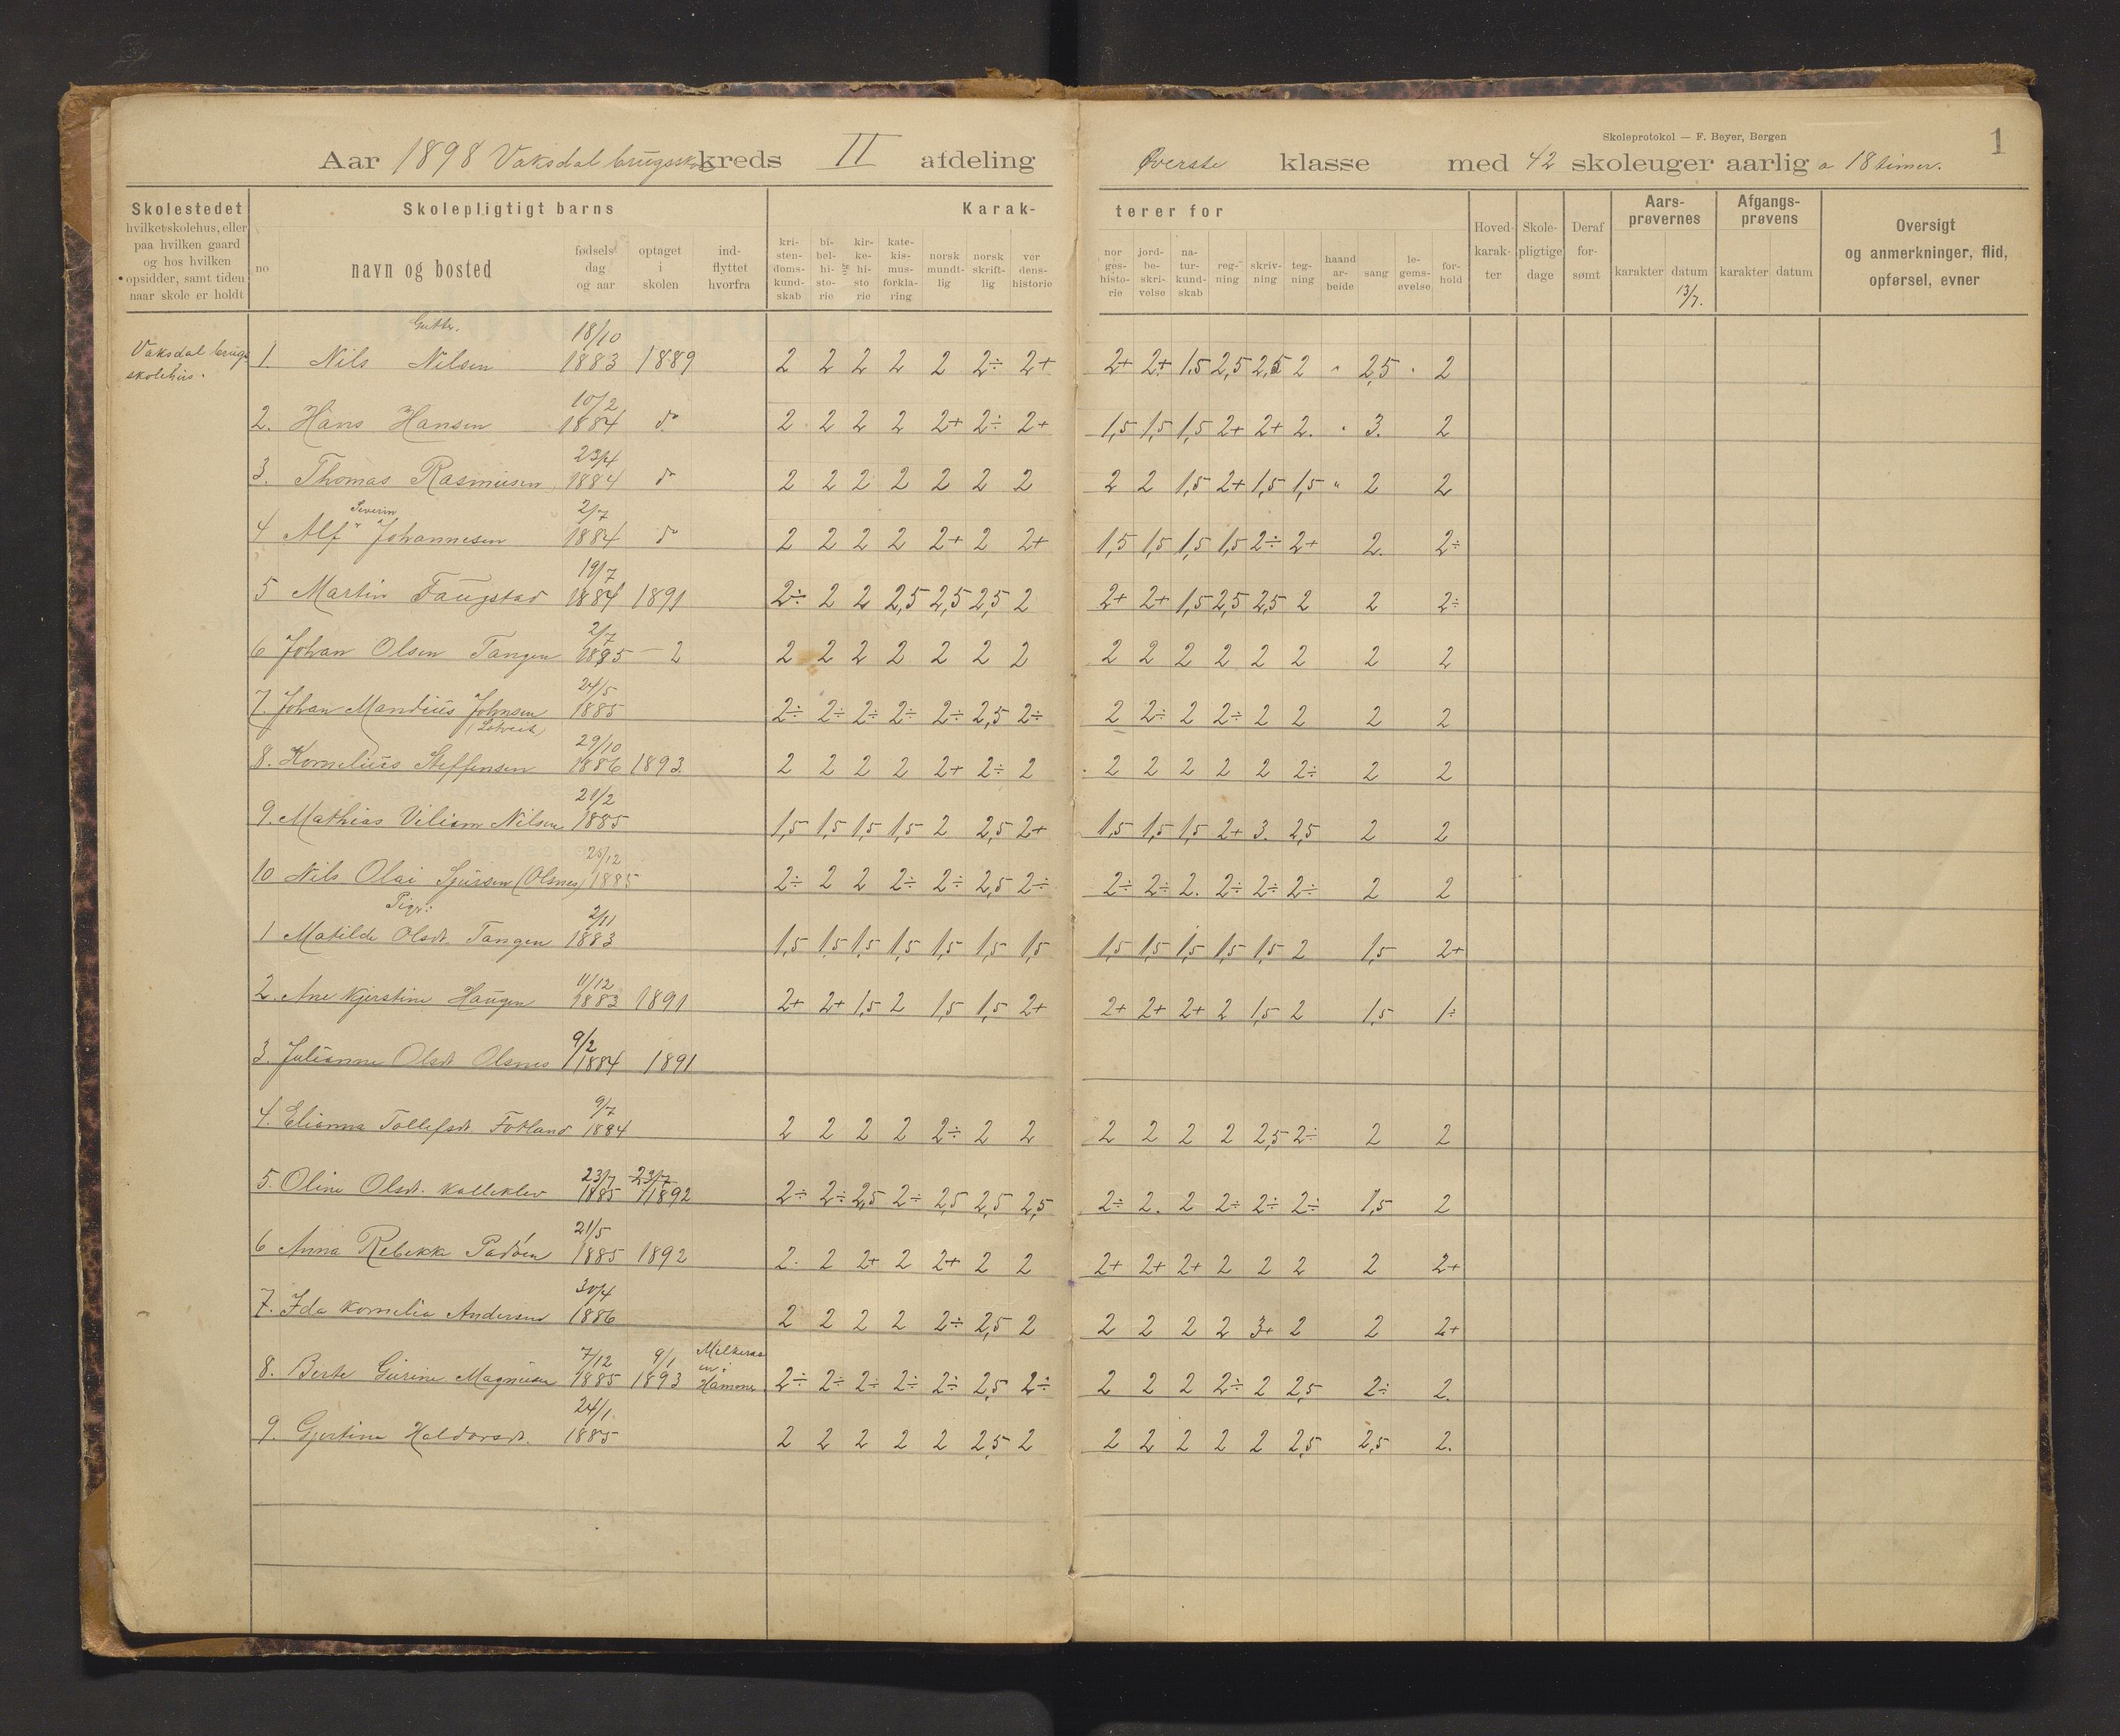 Skoleprotokol — F. Beyer, Bergen
1
Aar 1898 Vaksdal brugsskolekreds II afdeling Øverste klasse med 42 skoleuger aarlig a 18 timer.
Skolestedet
hvilket skolehus, eller
paa hvilken gaard
og hos hvilken
opsidder, samt tiden
naar skole er holdt
Skolepligtigt barns
no
navn og bosted
fødsels
dag
og aar
optaget
i
skolen
ind-
flyttet
hvorfra
Karak-
kri-
sten-
doms-
kund-
skab
bi-
bel-
hi-
sto-
rie
kir-
ke-
hi-
sto
rie
kate-
kis-
mus-
forkla-
ring
norsk
mundt-
lig
norsk
skrift-
lig
ver
dens-
historie
terer for
nor
ges-
histo-
rie
jord-
be-
skri-
velse
na-
tur-
kund-
skab
reg-
ning
skriv-
ning
teg-
ning
haand
ar-
beide
sang
le-
gems-
øvelse
for-
hold
Hoved-
karak-
ter
Skole-
pligtige
dage
Deraf
for-
sømt
Aars-
prøvernes
karakter datum
13/7.
Afgangs-
prøvens
karakter datum
Oversigt
og anmerkninger, flid,
opførsel, evner
Vaksdal brugs
skolehus.
Gutter.
1. Nils Nilsen 18/10 1883 1889 2 2 2 2 2 2÷ 2+ 2+ 2+ 1,5 2,5 2,5 2 " 2,5 " 2
2. Hans Hansen 10/2 1884 do 2 2 2 2 2+ 2÷ 2+ 1,5 1,5 1,5 2+ 2+ 2. " 3. 2
3. Thomas Rasmusen 23/4 1884 do 2 2 2 2 2 2 2 2 2 1,5 2+ 1,5 1,5 " 2 2
4 Alf Severin Johannesen 2/7 1884 do 2 2 2 2 2+ 2 2+ 1,5 1,5 1,5 1,5 2÷ 2+ 2. 2÷
5 Martin Faugstad 19/7 1884 1891 2÷ 2 2 2,5 2,5 2,5 2 2+ 2+ 1,5 2,5 2,5 2 2 2÷
6 Johan Olsen Tangen 2/7 1885 — 2 2 2 2 2 2 2 2 2 2 2 2 2 2 2 2
7. Johan Mandius Johnsen 24/5 1885 2÷ 2÷ 2÷ 2÷ 2÷ 2,5 2÷ 2 2÷ 2 2÷ 2 2 2 2
8. Kornelius Steffensen 29/10 1886 1893. 2 2 2 2 2+ 2÷ 2 2 2 2 2 2 2÷ 2 2
9. Mathias Viliam Nilsen 21/2 1885 1,5 1,5 1,5 1,5 2 2,5 2+ 1,5 1,5 1,5 2+ 3. 2,5 2 2
10 Nils Olai Sjursen (Olsnes) 25/12 1885 2÷ 2 2 2÷ 2÷ 2,5 2÷ 2÷ 2÷ 2. 2÷ 2÷ 2÷ 2 2
Piger:
1 Matilde Olsdt. Tangen 2/11 1883 1,5 1,5 1,5 1,5 1,5 1,5 1,5 1,5 1,5 1,5 1,5 1,5 2 1,5 2+
2. Ane Kjerstine Haugen 11/12 1883 1891 2+ 2+ 1,5 2 1,5 1,5 2+ 2+ 2+ 2+ 2 1,5 2 1,5 1÷
3. Julianne Olsdt. Olsnes 9/2 1884 1891
4. Elianna Tollefsdt. Fotland 9/7 1884 2 2 2 2 2÷ 2 2 2 2 2 2 2,5 2÷ 2 2
5. Oline Olsdt. Kalleklev 23/7 1885 23/7 1892 2÷ 2÷ 2,5 2÷ 2,5 2,5 2,5 2÷ 2. 2 2÷ 2÷ 2÷ 1,5 2
6 Anna Rebekk Padøen 21/5 1885 1892 2. 2 2+ 2 2+ 2 2 2+ 2+ 2+ 2 2 2 2 2+
7. Ida Kornelia Andersen 30/4 1886 2 2 2 2 2÷ 2,5 2 2 2 2 2 3+ 2 2 2+
8. Berte Gurine Magnusen 7/12 1885 9/1 1893 Hamone 2÷ 2÷ 2÷ 2÷ 2÷ 2,5 2÷ 2 2 2 2÷ 2 2,5 2÷ 2.
9. Gjertine Haldorsdt. 24/1 1885 2 2 2 2 2 2,5 2 2 2 2 2 2 2,5 2,5 2.